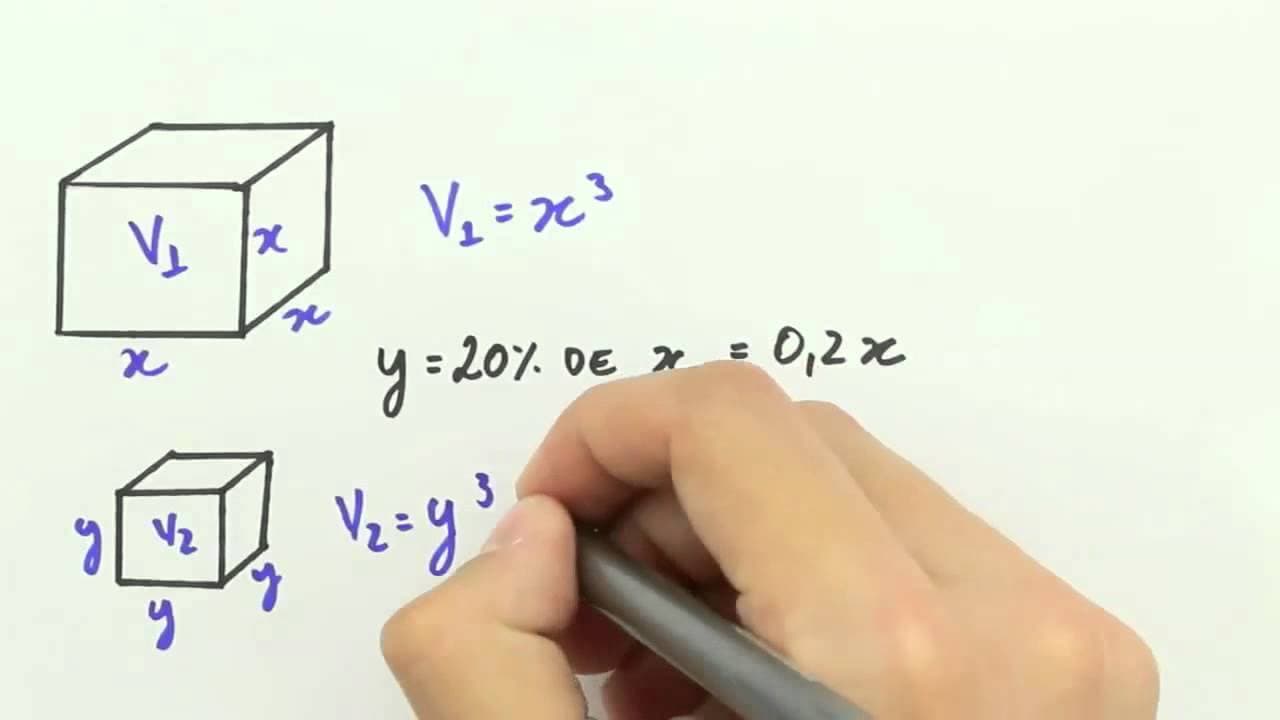 V₁
x
x
x
V₁ = x³
y = 20% DE x = 0,2x
V₂
y
y
y
V₂ = y³